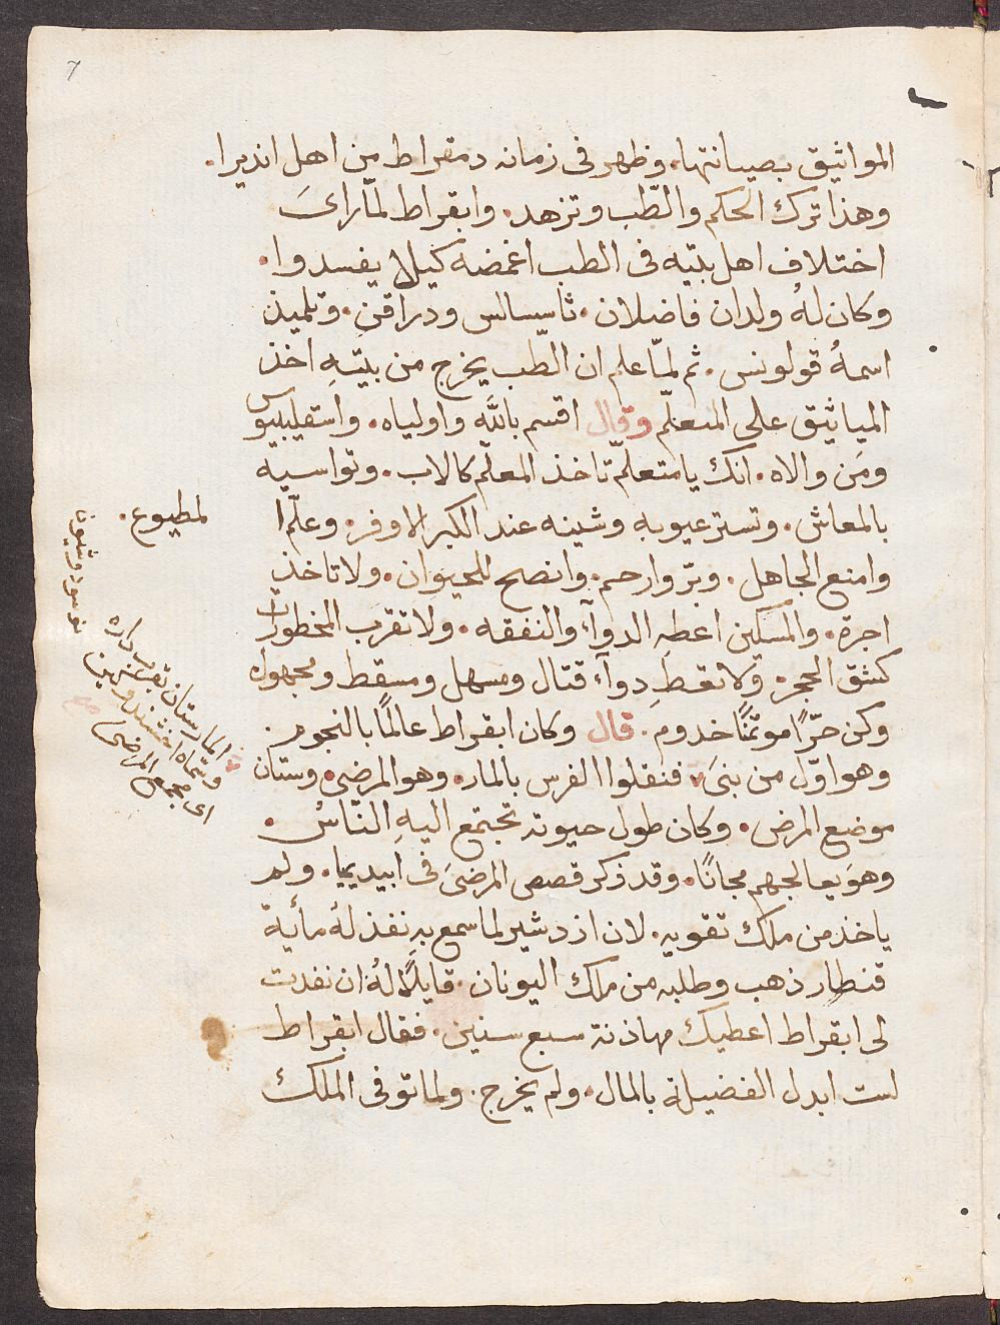 المواثيق بصيانتها. وظهر فى زمانه دمقراط من اهل انديرا.
وهذا ترك الحكم والطّب وتزهد. وابقراط لمّا راىَ
اختلاف اهل بيته فى الطب اغمضه كيلا يفسدوا.
وكان لهُ ولدان فاضلان. ثاسيسالس ودراقن. وتلميذ
اسمهُ قولونس. ثم لمّا علم ان الطّب يخرج من بيتهِ اخذ
المياثيق على المتعلّم وقال اقسم بالله واولياه. واسقليبيوس
ومَن والاه. انك يا متعلّم تاخذ المعلّم كالاب. وتواسيه
بالمعاش. وتستر عيوبه وشينه عند الكبر الاوفر. وعلّم ا لمطيوع.
وامنع الجاهل. وبرّ وارحم. وانصح للحيوان. ولا تاخذ
اجرة. والمسكين اعطهِ الدوآء والنفقه. ولا تقرب المخطورات
كشق الحجر. ولا تعطِ دوآء قتال ومسهل ومسقط ومجهول
وكن حرًّا موتمنًا خدوم. قال وكان ابقراط عالمًا بالنجوم.
وهو اوّل من بنىَ فنقلوا الفرس بالمار. وهو المرضى. وستان
موضع المرض. وكان طول حيوته تجتمع اليهِ النّاسُ.
وهوَ يعالجهم مجانًا. وقد ذكر قصص المرضىَ فى ابيديميا. ولم
ياخذ من ملك تقويه. لان ازدشير لما سمع بهِ نفذ لهُ مأية
قنطار ذهب وطلبه من ملك اليونان. قايلًا لهُ ان نفدت
لى ابقراط اعطيك مهاذنة سبع سنين. فقال ابقراط
لست ابدل الفضيلة بالمال. ولم يخرج. ولما توفى الملك
المارستان بقرب داره
وسماه
اى مجمع المرضى صح